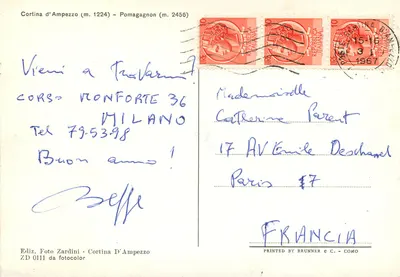 Cortina d'Ampezzo (m. 1224) - Pomagagnon (m. 2456)
Vieni a trovarmi!
CORSO MONFORTE 36
MILANO
Tel 79.53.98
Buon anno!
Beppe
Ediz. Foto Zardini - Cortina D'Ampezzo
ZD 0111 da fotocolor
15-16
3
1967
Mademoiselle
Catherine Parent
17 AV Emile Deschanel
Paris 17
FRANCIA
PRINTED BY BRUNNER & C. - COMO